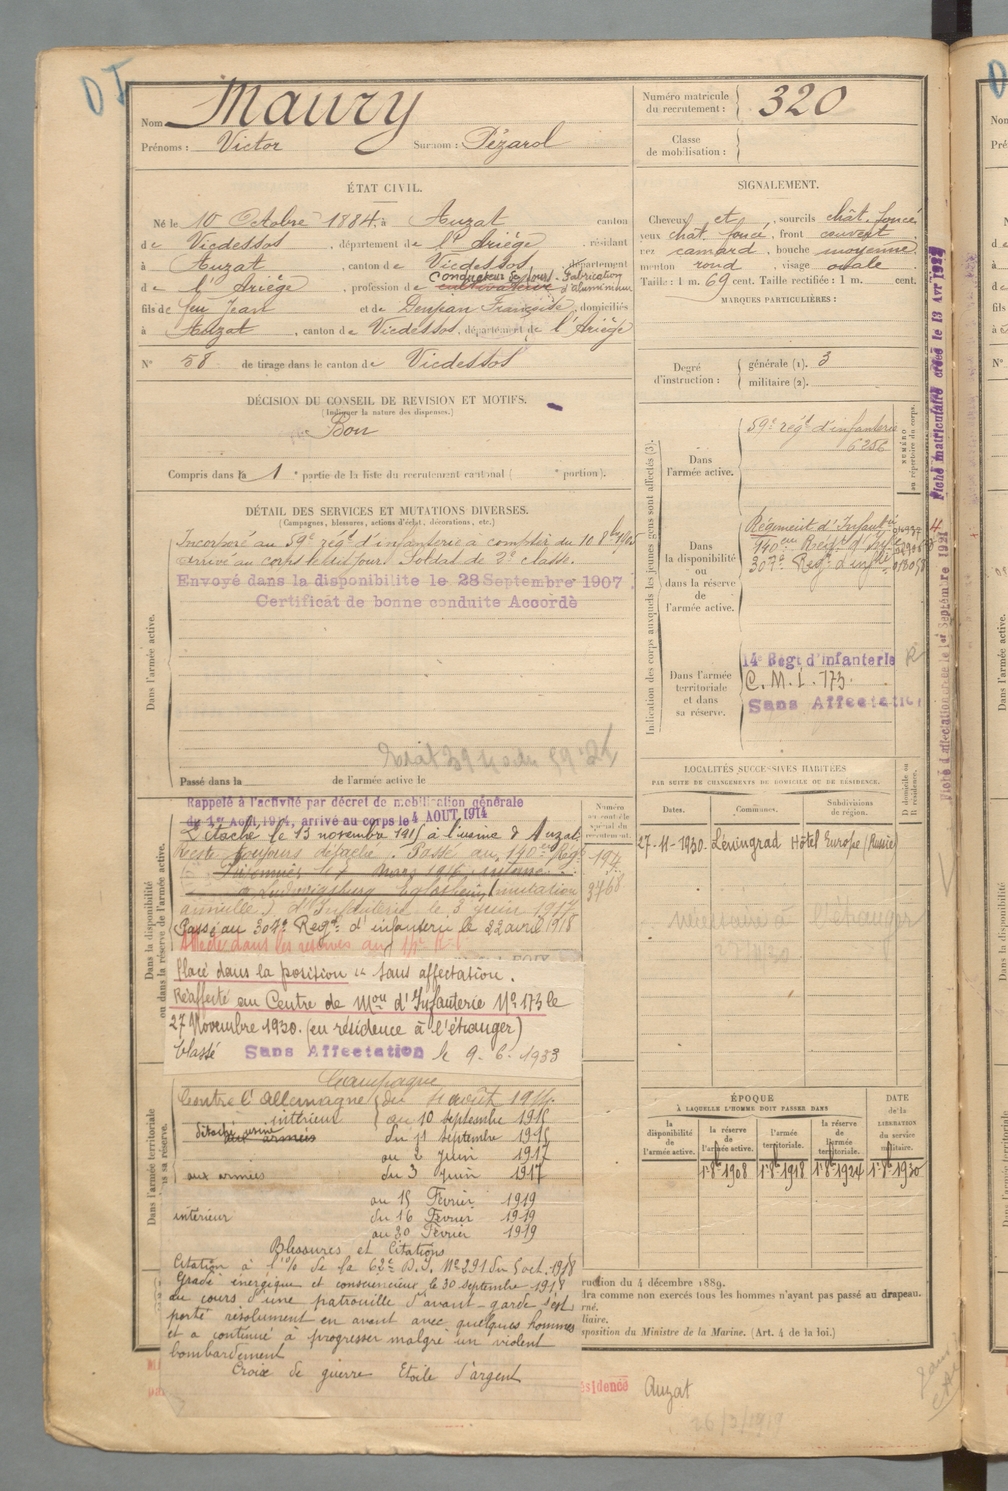 DI
Nom Maury
Prénoms : Victor Surnom : Pézarol
Numéro matricule du recrutement : 320
Classe de mobilisation :
ÉTAT CIVIL.
Né le 10 Octobre 1884, à Auzat canton
de Vicdessos, département de l'Ariège, résidant
à Auzat, canton de Vicdessos, département
de l'Ariège, profession de cultivateur Conducteur de four. Fabrication d'aluminium
fils de feu Jean et de Denjean Françoise, domiciliés
à Auzat, canton de Vicdessos, département de l'Ariège
N° 58 de tirage dans le canton de Vicdessos
SIGNALEMENT.
Cheveux et, sourcils chât. foncé
yeux chat. foncé, front couvert
nez camard, bouche moyenne
menton rond, visage ovale
Taille : 1 m. 69 cent. Taille rectifiée : 1 m. cent.
MARQUES PARTICULIÈRES :
Degré d'instruction : générale (1). 3
militaire (2).
DÉCISION DU CONSEIL DE REVISION ET MOTIFS.
(Indiquer la nature des dispenses.)
Bon
Compris dans la 1e partie de la liste du recrutement cantonal ( e portion).
DÉTAIL DES SERVICES ET MUTATIONS DIVERSES.
(Campagnes, blessures, actions d'éclat, décorations, etc.)
Dans l'armée active.
Incorporé au 59e régt d'infanterie à compter du 10 8bre 1905
arrivé au corps le dit jour. Soldat de 2e classe.
Envoyé dans la disponibilité le 28 Septembre 1907
Certificat de bonne conduite Accordé
Passé dans la de l'armée active le
Indication des corps auxquels les jeunes gens sont affectés (3).
Dans l'armée active.
59e régt d'infanterie
6256
NUMÉRO au répertoire du corps.
Dans la disponibilité ou dans la réserve de l'armée active.
Régiment d'Infanterie
140eme Régt d'Infie
307e Regt d'infie
Dans l'armée territoriale et dans sa réserve.
14e Régt d'Infanterie
C. M. I. 173.
Sans Affectation
Fiche matriculaire créée le 13 Avr
Fiche d'affectation créée le 1er Septembre
LOCALITÉS SUCCESSIVES HABITÉES
PAR SUITE DE CHANGEMENTS DE DOMICILE OU DE RÉSIDENCE.
Dates. Communes. Subdivisions de région. D domicile ou R résidence.
27-11-1930. Léningrad Hôtel Europe (Russie)
Dans la disponibilité ou dans la réserve de l'armée active.
Rappelé à l'activité par décret de mobilisation générale
du 1er Août 1914, arrivé au corps le 4 AOUT 1914
Détaché le 13 novembre 1915 à l'usine d'Auzat
reste toujours détaché. Passé au 140eme Regt
d'Infanterie le 3 Juin 1917
Passé au 307e Regt d'infanterie le 22 avril 1918
Affecté dans les réserves au 14e R.I.
194
3768
placé dans la position "sans affectation.
Réaffecté au Centre de Mon d'Infanterie No 173 le
27 Novembre 1930. (en résidence à l'étranger)
Classé Sans Affectation le 9-6-1933
Dans l'armée territoriale et dans sa réserve.
Campagne
Contre l'Allemagne du 4 août 1914
intérieur au 10 septembre 1915
détaché usine aux armées du 11 septembre 1915
au 2 Juin 1917
aux armées du 3 Juin 1917
au 15 Février 1919
intérieur du 16 Février 1919
au 20 Février 1919
Blessures et Citations
Citation à l'o/ de la 62e D.I. No 291 du 5 oct. 1918
Gradé énergique et consciencieux, le 30 septembre 1918
au cours d'une patrouille d'avant-garde s'est
porté résolument en avant avec quelques hommes
et a continué à progresser malgré un violent
bombardement
Croix de guerre Etoile d'argent
ÉPOQUE
À LAQUELLE L'HOMME DOIT PASSER DANS
la disponibilité de l'armée active. la réserve de l'armée active. l'armée territoriale. la réserve de l'armée territoriale.
DATE de la LIBÉRATION du service militaire.
1er 8bre 1908 1er 8bre 1918 1er 8bre 1924 1er 8bre 1930
ruction du 4 décembre 1889.
dra comme non exercés tous les hommes n'ayant pas passé au drapeau.
rné.
liaire.
sposition du Ministre de la Marine. (Art. 4 de la loi.)
ésidence Auzat
26/2/1919